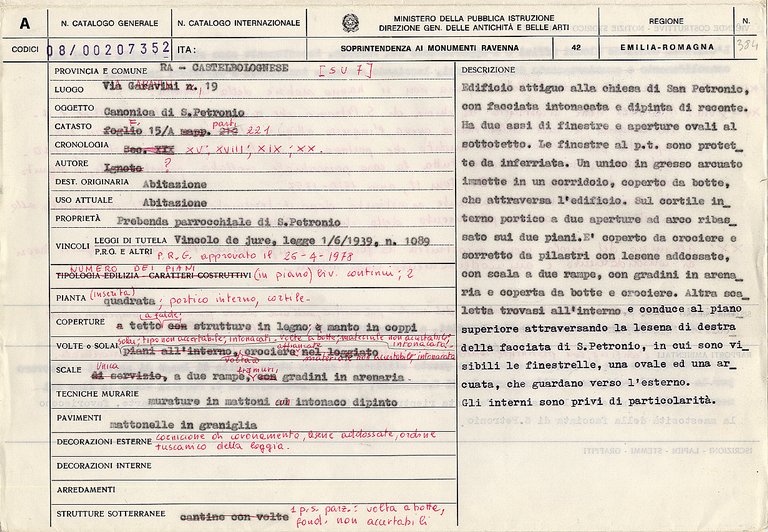 A
N. CATALOGO GENERALE
N. CATALOGO INTERNAZIONALE
MINISTERO DELLA PUBBLICA ISTRUZIONE
DIREZIONE GEN. DELLE ANTICHITÀ E BELLE ARTI
REGIONE
N.
CODICI
08/00207352
ITA:
SOPRINTENDENZA AI MONUMENTI RAVENNA
42
EMILIA-ROMAGNA
384
PROVINCIA E COMUNE RA - CASTELBOLOGNESE [SU7]
LUOGO Via Garavini n. 19
OGGETTO Canonica di S.Petronio
CATASTO F. foglio 15/A mapp. part. 221
CRONOLOGIA Sec. XIX XV; XVIII; XIX; XX.
AUTORE Ignoto ?
DEST. ORIGINARIA Abitazione
USO ATTUALE Abitazione
PROPRIETÀ Prebenda parrocchiale di S.Petronio
VINCOLI LEGGI DI TUTELA Vincolo de jure, legge 1/6/1939, n. 1089
P.R.O. E ALTRI P.R.G. approvato il 26-4-1978
NUMERO DEI PIANI
TIPOLOGIA EDILIZIA - CARATTERI COSTRUTTIVI (in piano) liv. continui; 2
PIANTA (inscrita) quadrata; portico interno, cortile.
COPERTURE a falde; a tetto con strutture in legno; è manto in coppi
VOLTE o SOLAI solai, tipo non accertabile, intonacati - volte a botte, materiale non accertabile, intonacata.
piani all'interno, crociere nel loggiato
materiale non accertabile intonacata
SCALE Unica di servizio, a due rampe, con gradini in arenaria.
TECNICHE MURARIE murature in mattoni con intonaco dipinto
PAVIMENTI mattonelle in graniglia
DECORAZIONI ESTERNE cornicione di coronamento, lesene addossate, ordine
tuscanico della loggia.
DECORAZIONI INTERNE
ARREDAMENTI
STRUTTURE SOTTERRANEE cantine con volte 1 p.s. parz.: volta a botte,
fond. non accertabili
DESCRIZIONE
Edificio attiguo alla chiesa di San Petronio,
con facciata intonacata e dipinta di recente.
Ha due assi di finestre e aperture ovali al
sottotetto. Le finestre al p.t. sono protet_
te da inferriata. Un unico in gresso arcuato
immette in un corridoio, coperto da botte,
che attraversa l'edificio. Sul cortile in_
terno portico a due aperture ad arco ribas_
sato sui due piani.E' coperto da crociere e
sorretto da pilastri con lesene addossate,
con scala a due rampe, con gradini in arena_
ria e coperta da botte e crociere. Altra sca_
letta trovasi all'interno e conduce al piano
superiore attraversando la lesena di destra
della facciata di S.Petronio, in cui sono vi_
sibili le finestrelle, una ovale ed una ar_
cuata, che guardano verso l'esterno.
Gli interni sono privi di particolarità.